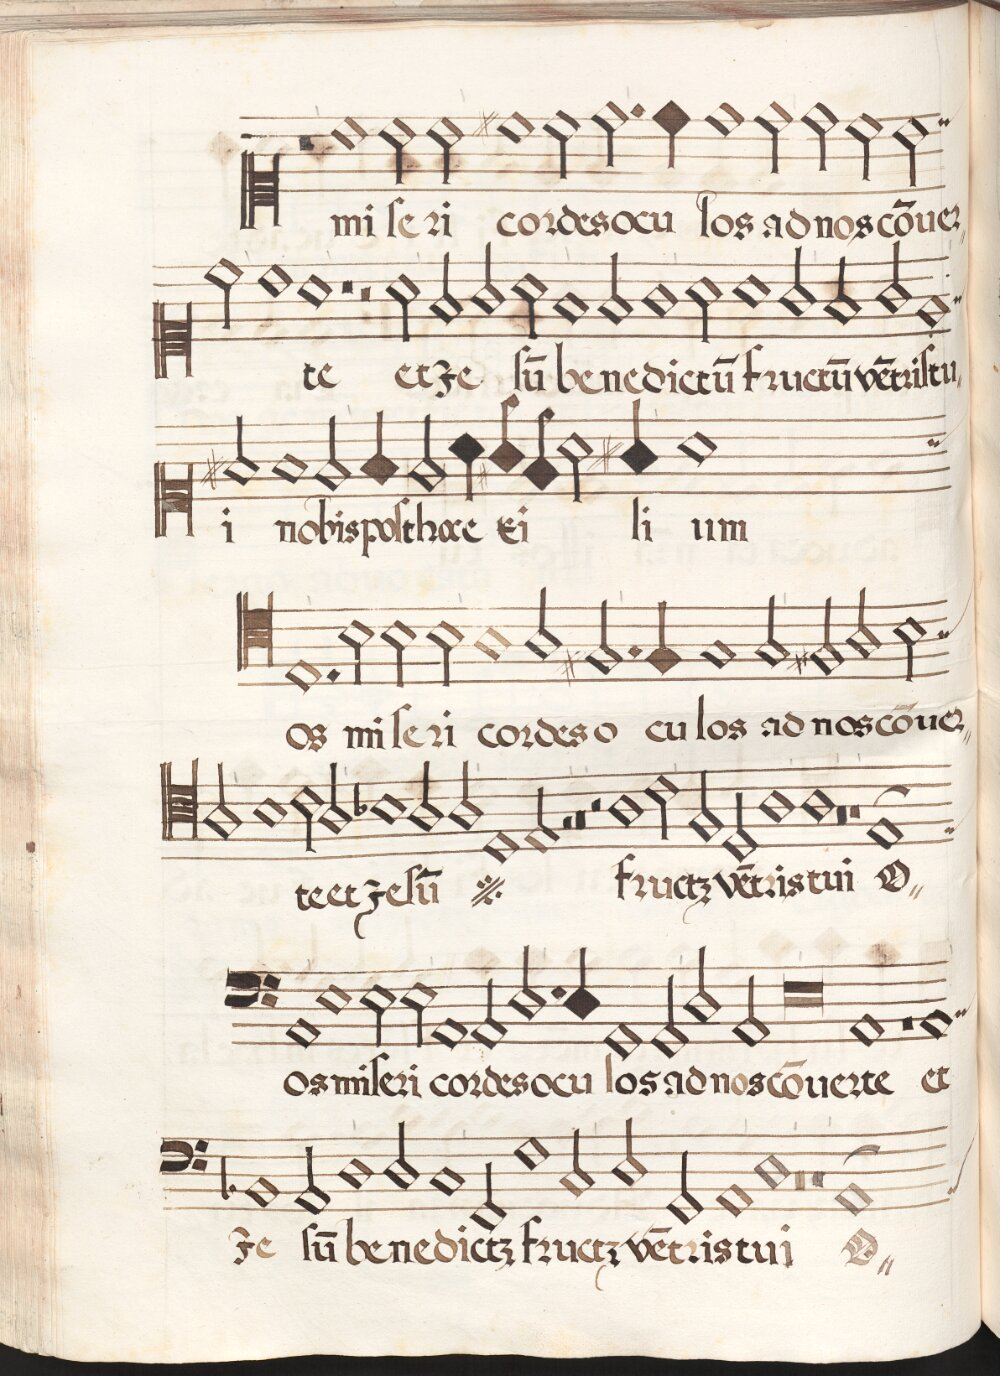 mi se ri cordes ocu los ad nos cōuer
te et Je sū benedictū fructū vētris tu
i nobis post hoc exi li um
os mi se ri cordes o cu los ad nos cōuer
te et Jesū fructꝫ vētris tui O
os miseri cordes ocu los ad nos cōuerte et
Je sū benedictꝫ fructꝫ vētris tui O